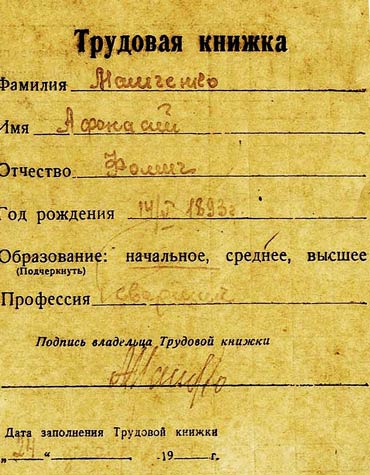 Трудовая книжка
Фамилия
Имя Афонасий
Отчество Фомич
Год рождения 14/V 1893 г.
Образование: начальное, среднее, высшее
(Подчеркнуть)
Профессия сварщик
Подпись владельца Трудовой книжки
Дата заполнения Трудовой книжки
„ “ 19 г.